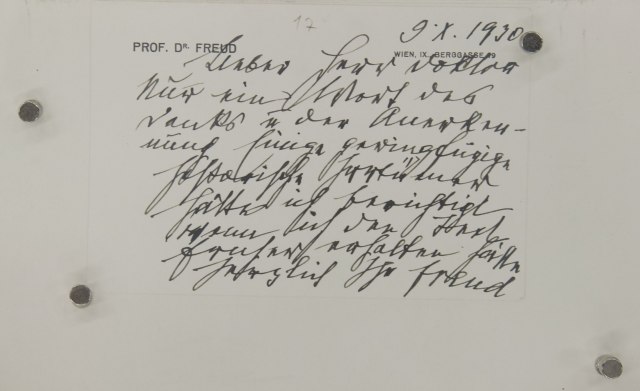 17
9.X.1930
PROF. DR. FREUD
WIEN, IX., BERGGASSE 19
Lieber Herr Doktor
Nur ein Wort des
Danks u der Anerken-
nung Einige geringfügige
historische Irrtümer
hätte ich berichtigt
wenn ich den Text
früher erhalten hätte
Herzlich Ihr Freud